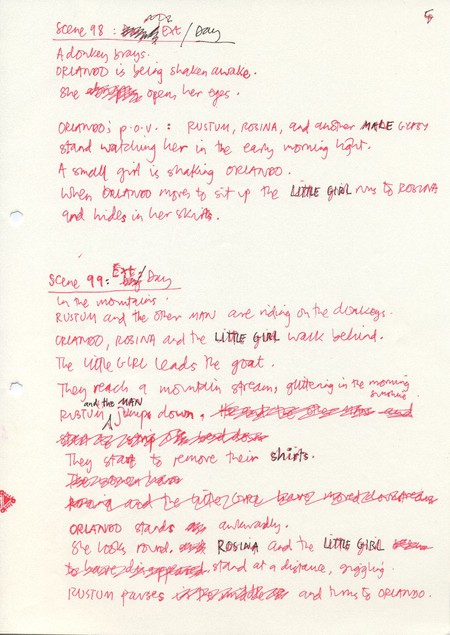 5
Scene 98: Ext/Day
A donkey brays.
ORLANDO is being shaken awake.
She opens her eyes.
ORLANDO's p.o.v.: RUSTUM, ROSINA, and another MALE GYPSY
stand watching her in the early morning light.
A small girl is shaking ORLANDO.
When ORLANDO moves to sit up the LITTLE GIRL runs to ROSINA
and hides in her skirts.
Scene 99: Ext/Day
In the mountains.
RUSTUM and the other MAN are riding on the donkeys.
ORLANDO, ROSINA and the LITTLE GIRL walk behind.
The LITTLE GIRL leads the goat.
They reach a mountain stream, glittering in the morning
sunshine.
and the MAN
RUSTUM jumps down.
They start to remove their shirts.
ORLANDO stands awkwardly.
She looks round. ROSINA and the LITTLE GIRL
to have disappeared stand at a distance, giggling.
RUSTUM pauses and turns to ORLANDO.